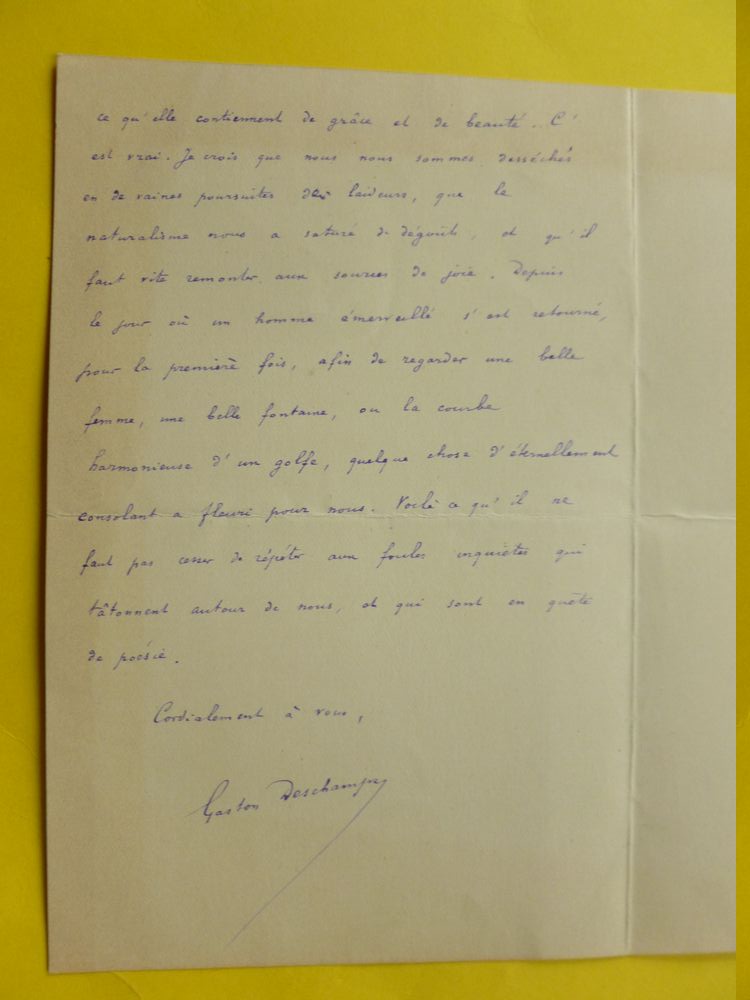 ce qu'elle contiennent de grâce et de beauté. C'
est vrai. Je crois que nous nous sommes desséchés
en de vaines poursuites de laideurs, que le
naturalisme nous a saturé de dégoûts, et qu'il
faut vite remonter aux sources de joie. Depuis
le jour où un homme émerveillé s'est retourné,
pour la première fois, afin de regarder une belle
femme, une belle fontaine, ou la courbe
harmonieuse d'un golfe, quelque chose d'éternellement
consolant a fleuri pour nous. Voilà ce qu'il ne
faut pas cesser de répéter aux foules inquiètes qui
tâtonnent autour de nous, et qui sont en quête
de poésie.
Cordialement à vous,
Gaston Deschamps